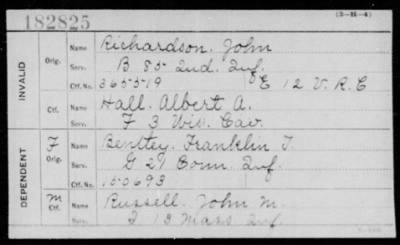 182825
(3-86-4)
INVALID
Orig. Name Richardson, John
Serv. B 85 Ind. Inf.
Ctf. No. 365519 & E 12 V. R. C
Ctf. Name Hall, Albert A.
Serv. F 3 Wis. Cav.
DEPENDENT
F Orig. Name Bentley, Franklin T.
Serv. G 27 Conn. Inf.
Ctf. No. 150693
M Ctf. Name Russell, John M.
Serv. I 13 Mass Inf.